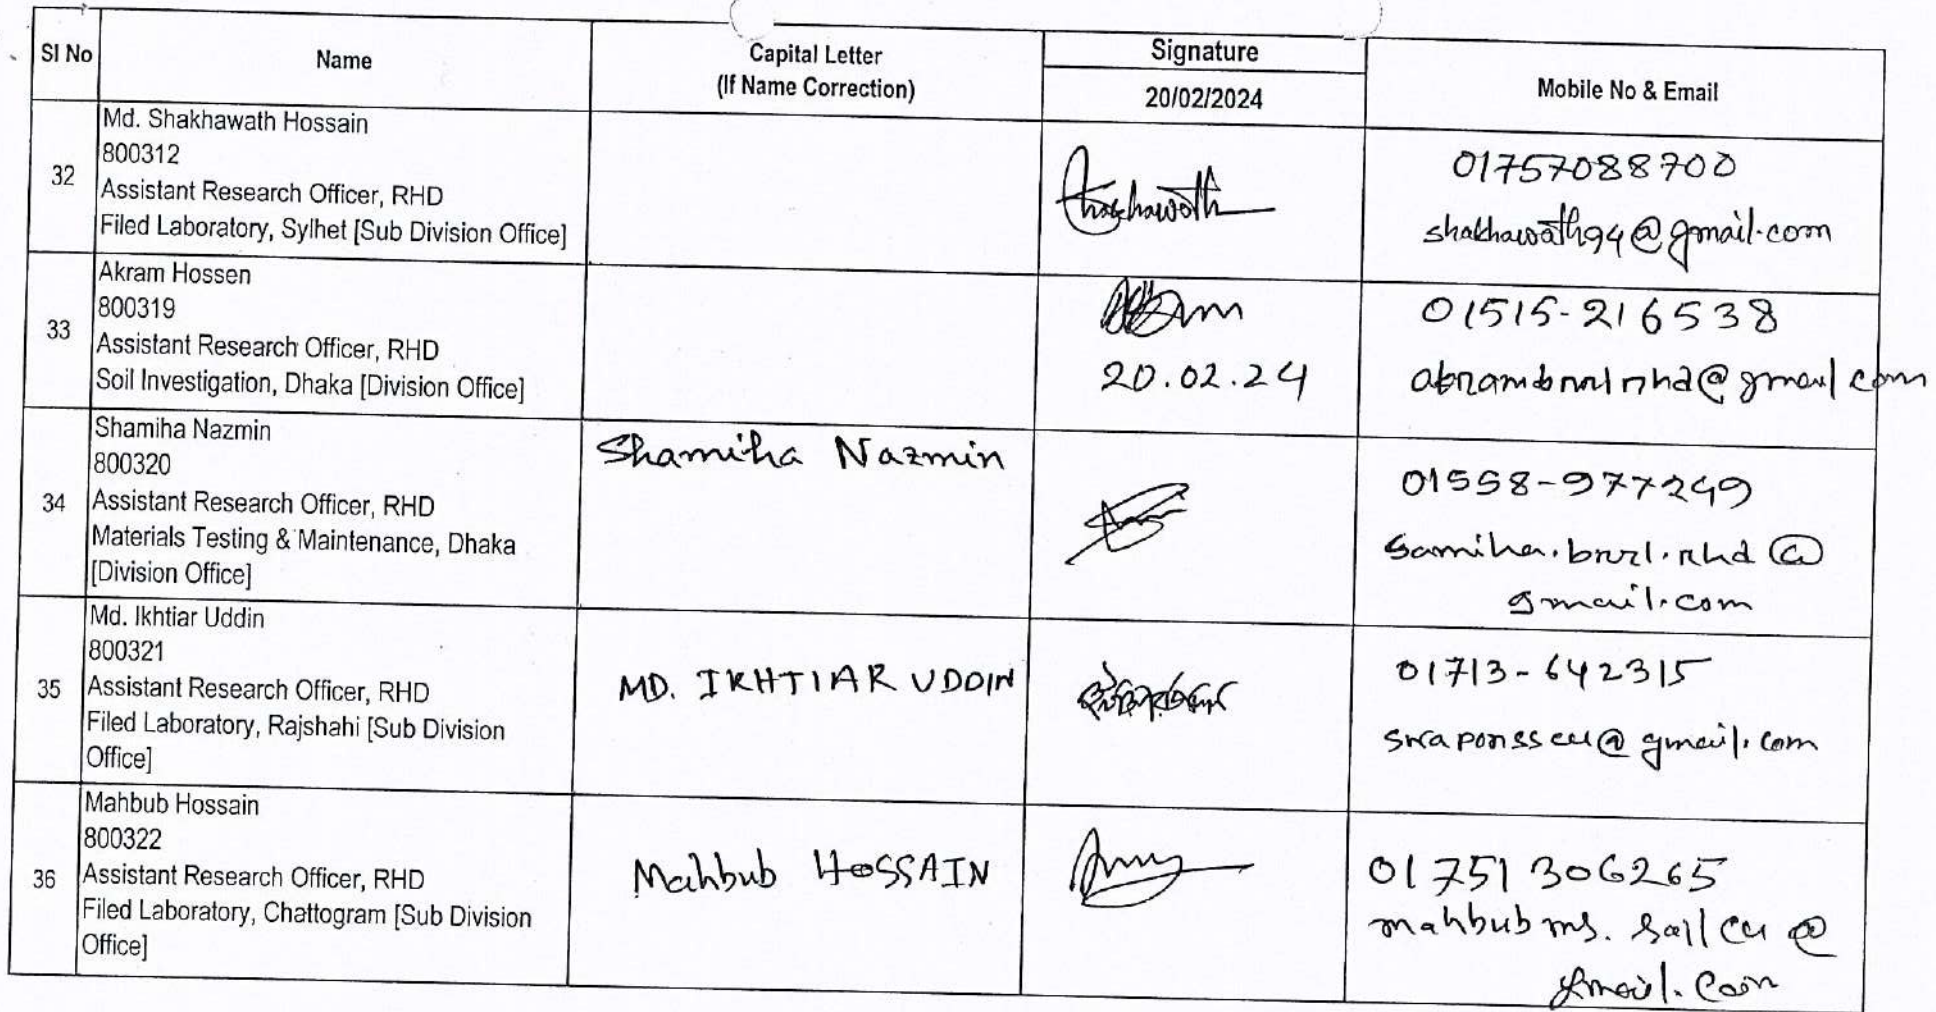 Sl No
Name
Capital Letter
(If Name Correction)
Signature
20/02/2024
Mobile No & Email
32
Md. Shakhawath Hossain
800312
Assistant Research Officer, RHD
Filed Laboratory, Sylhet [Sub Division Office]
Shakhawath
01757088700
shakhawath94@gmail.com
33
Akram Hossen
800319
Assistant Research Officer, RHD
Soil Investigation, Dhaka [Division Office]
20.02.24
01515-216538
akrambrrlrhd@gmail.com
34
Shamiha Nazmin
800320
Assistant Research Officer, RHD
Materials Testing & Maintenance, Dhaka
[Division Office]
Shamiha Nazmin
01558-977249
Samiha.brrl.rhd@
gmail.com
35
Md. Ikhtiar Uddin
800321
Assistant Research Officer, RHD
Filed Laboratory, Rajshahi [Sub Division
Office]
MD. IKHTIAR UDDIN
01713-642315
swaponsscu@gmail.com
36
Mahbub Hossain
800322
Assistant Research Officer, RHD
Filed Laboratory, Chattogram [Sub Division
Office]
Mahbub HOSSAIN
01751306265
gmail.com